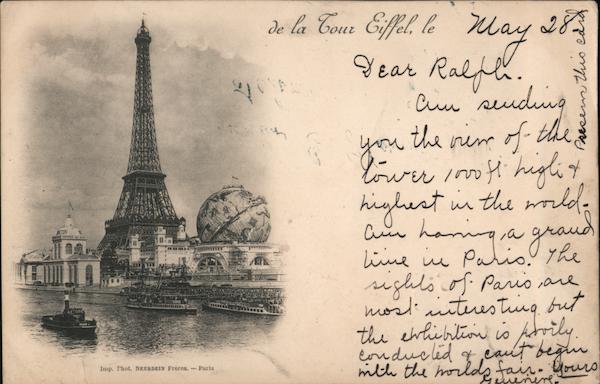 de la Tour Eiffel, le May 28-
Dear Ralph.
Am sending
you the view of the
tower 1000 ft high &
highest in the world.
Am having a grand
time in Paris. The
sights of Paris are
most interesting but
the exhibition is poorly
conducted & can't begin
with the worlds fair. Yours
Genevieve.
Preserve this card
Imp. Phot. NEURDEIN Frères. — Paris